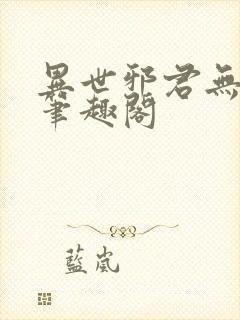 異世邪君無
筆趣閣
藍嵐